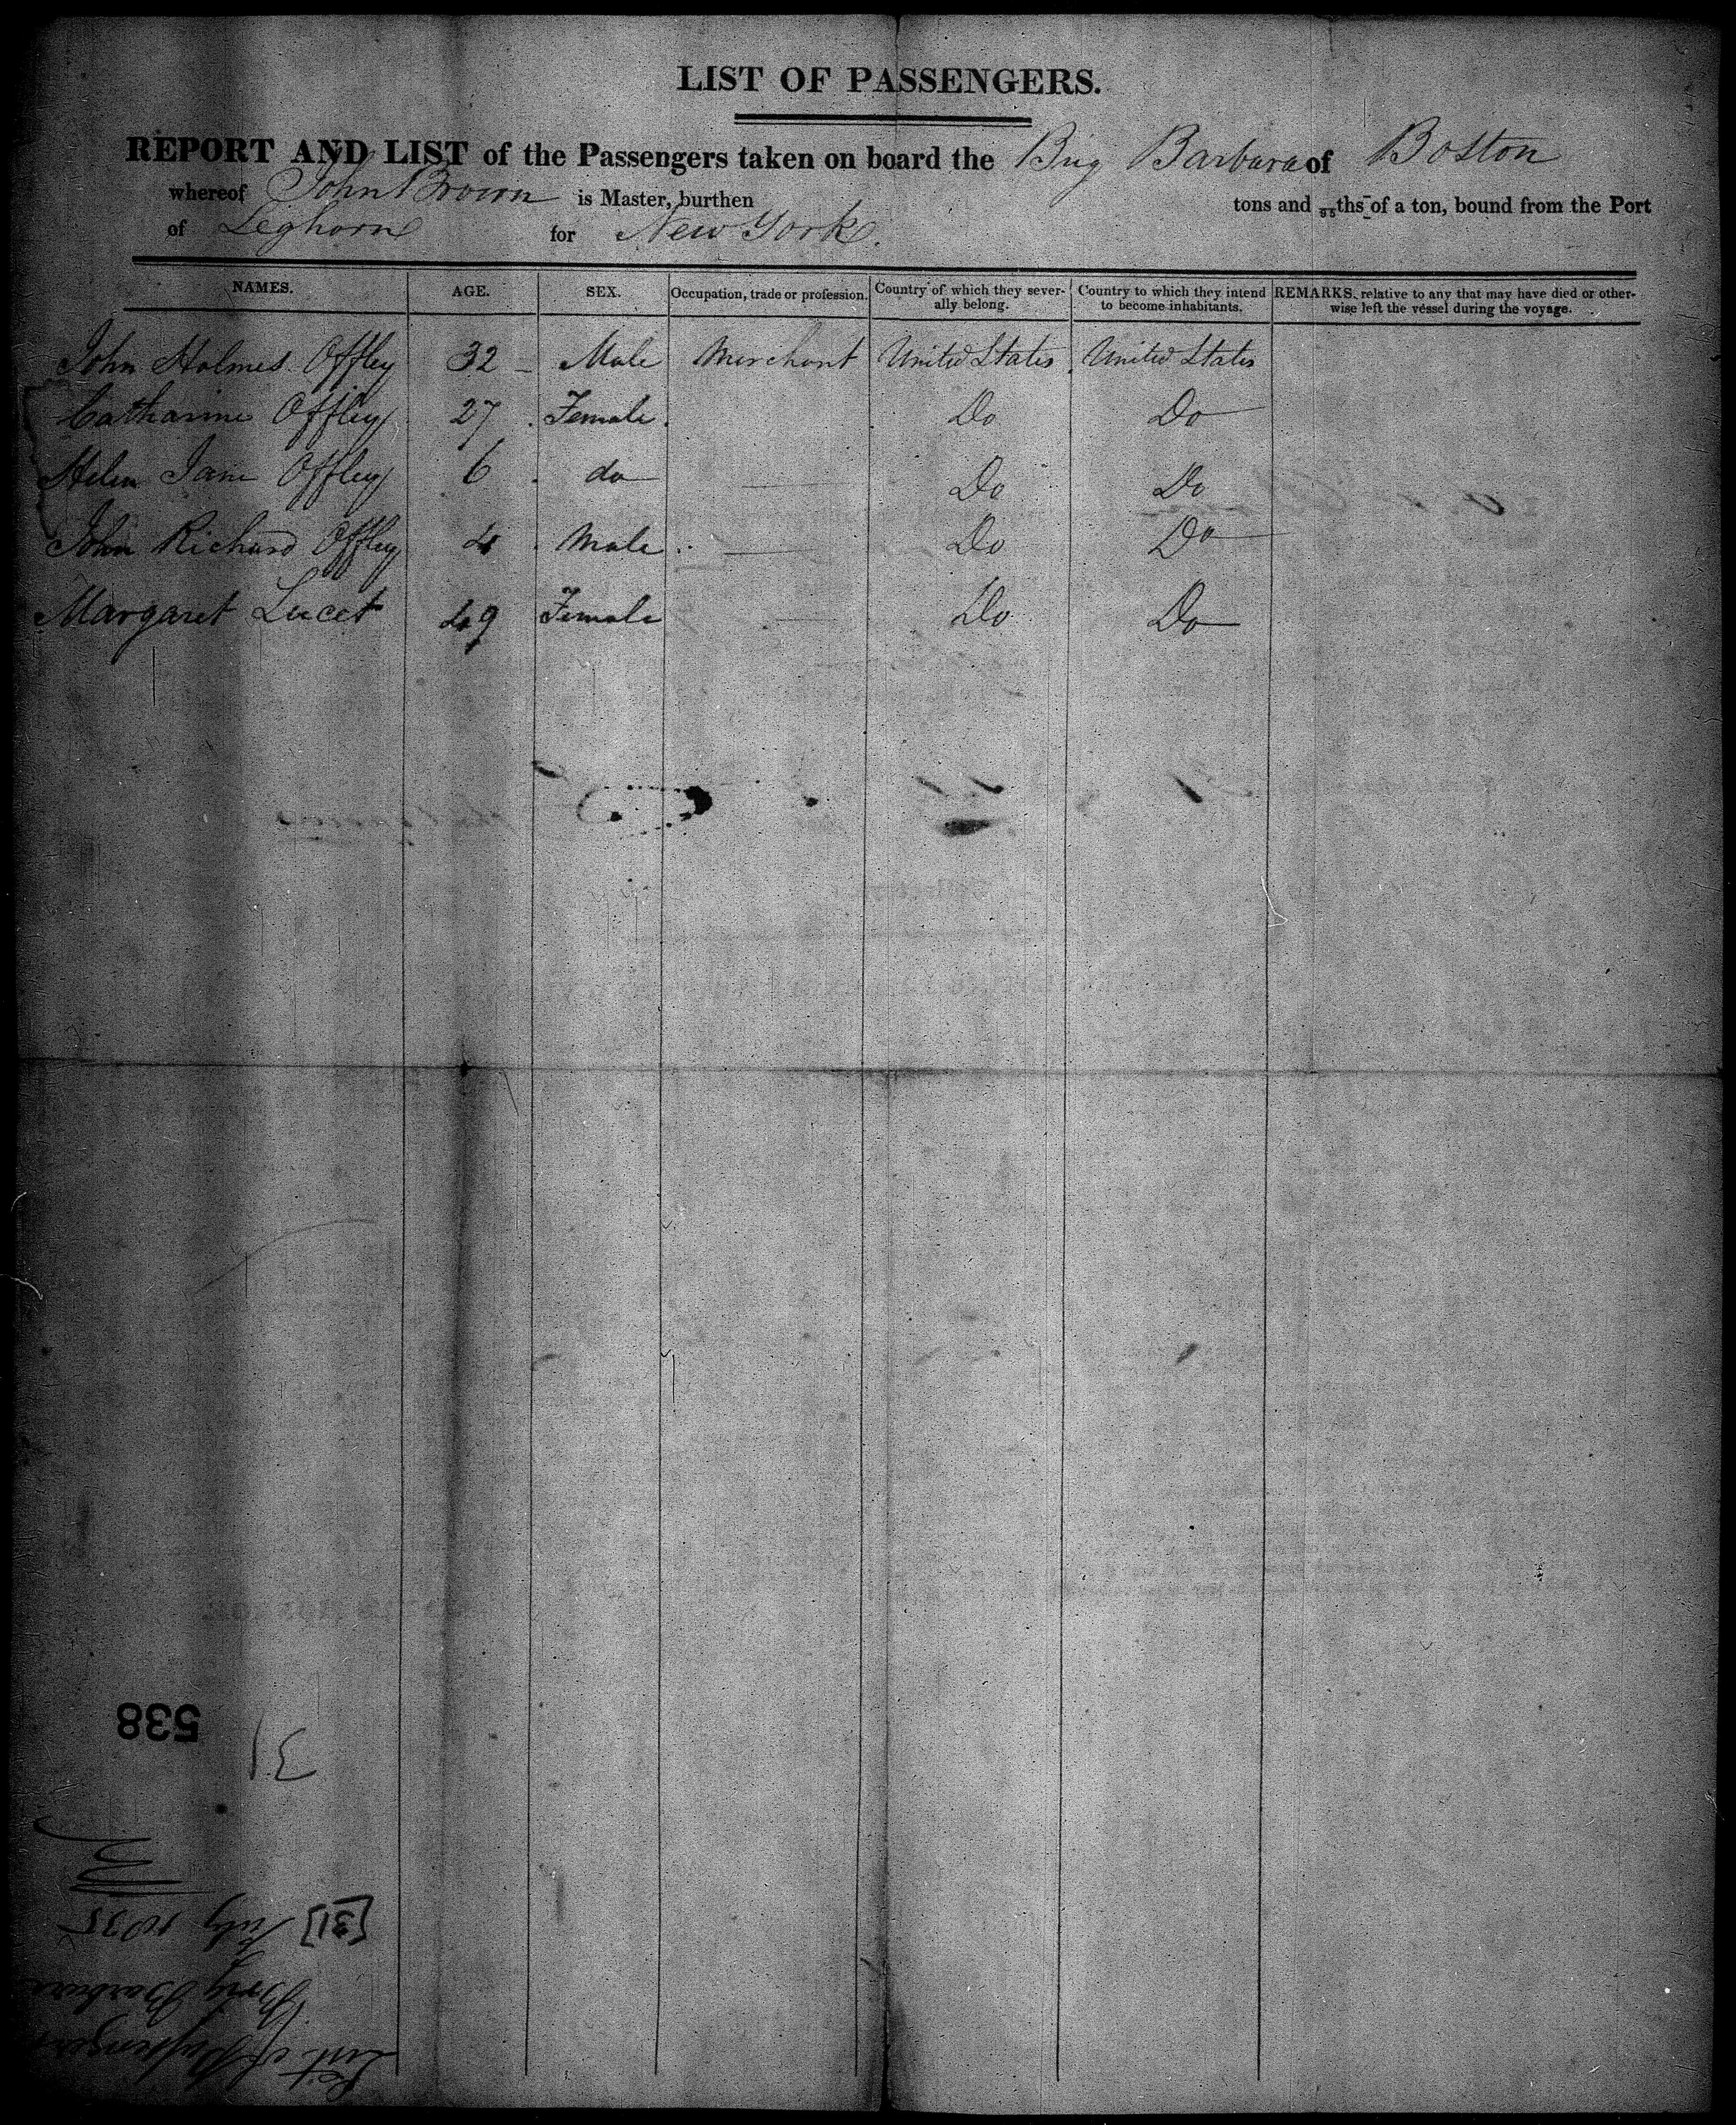 LIST OF PASSENGERS.
REPORT AND LIST of the Passengers taken on board the Brig Barbara of Boston
whereof John Brown is Master, burthen tons and 95ths of a ton, bound from the Port
of Leghorn for New York.
NAMES. AGE. SEX. Occupation, trade or profession. Country of which they sever-ally belong. Country to which they intend to become inhabitants. REMARKS, relative to any that may have died or other-wise left the vessel during the voyage.
John Holmes Offley 32 Male Merchant United States United States
Catharine Offley 27 Female Do Do
Helen Jane Offley 6 do Do Do
John Richard Offley 4 Male Do Do
Margaret Lucet 49 Female Do Do
538
31
[31] July 1835
Brig Barbara
List of Passengers